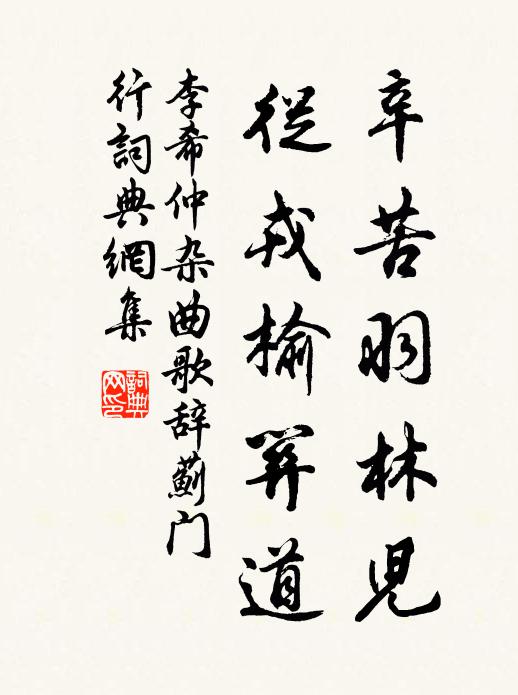 辛苦羽林兒
從戎榆關道
李希仲杂曲歌辞薊门
行詞典網集
詞典
网印